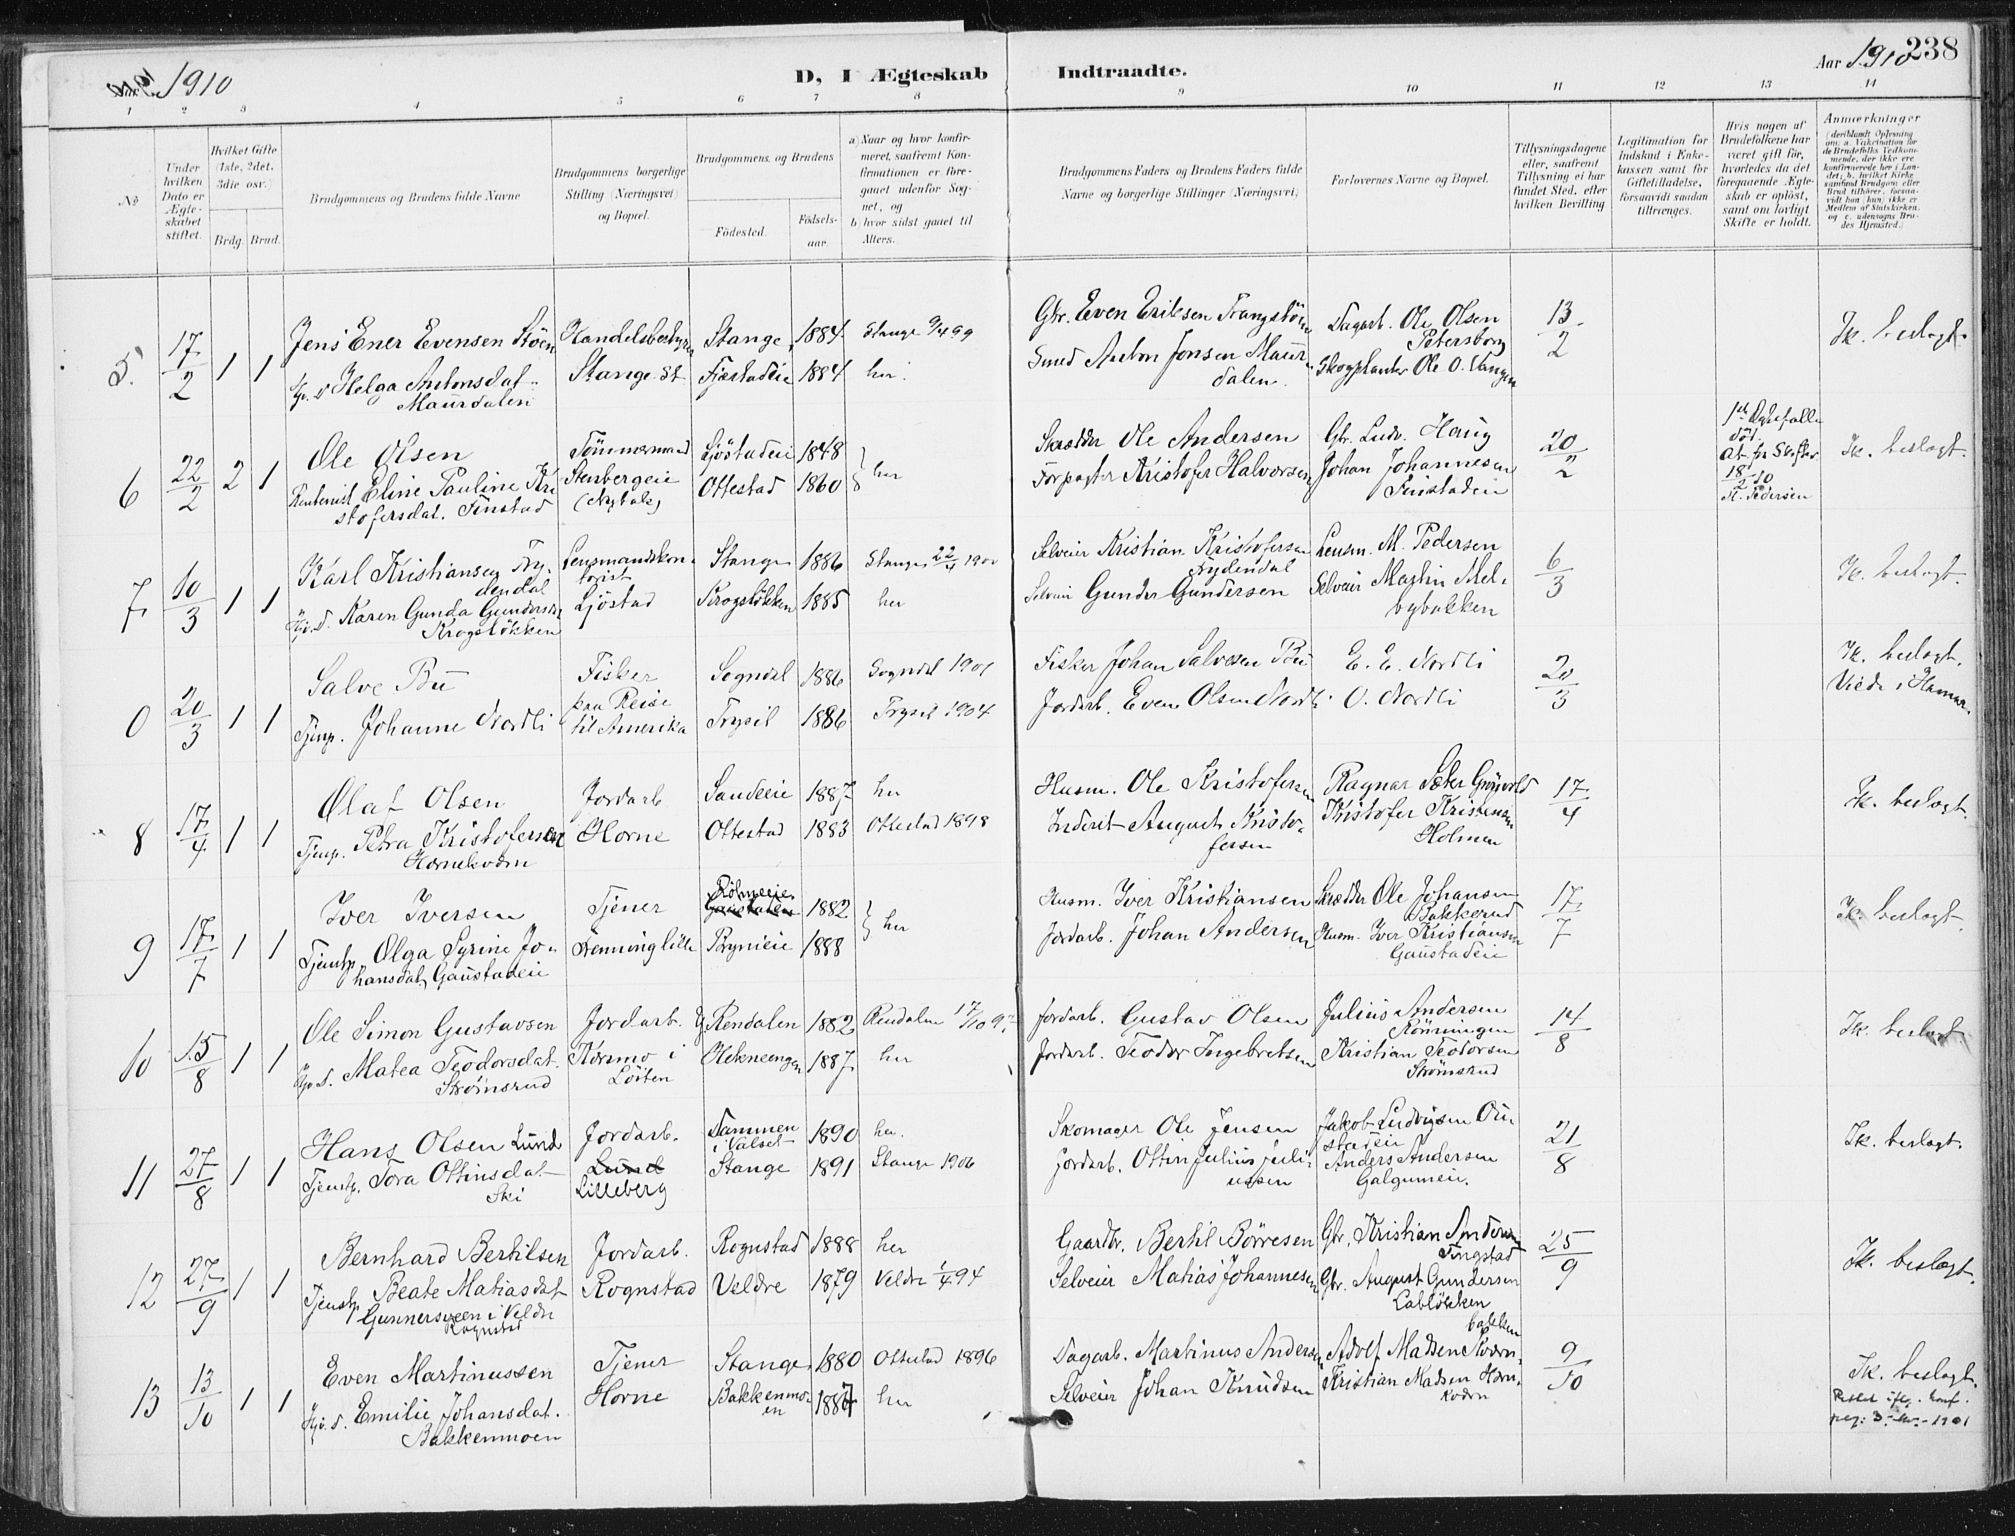 1910
D, I Ægteskab Indtraadte.
Aar 1910 238
1 2 3 4 5 6 7 8 9 10 11 12 13 14
No
Under hvilken Dato er Ægteskabet stiftet.
Hvilket Gifte (1ste, 2det, 3die osv.)
Brdg. Brud.
Brudgommens og Brudens fulde Navne
Brudgommens borgerlige Stilling (Næringsvei) og Bopæl.
Brudgommens og Brudens
Fødested.
Fødselsaar.
a) Naar og hvor konfirmeret, saafremt Konfirmationen er foregaaet udenfor Sognet, og
b) hvor sidst gaaet til Alters.
Brudgommens Faders og Brudens Faders fulde Navne og borgerlige Stillinger (Næringsvei)
Forlovernes Navne og Bopæl.
Tillysningsdagene eller, saafremt Tillysning ei har fundet Sted, efter hvilken Bevilling
Legitimation for Indskud i Enkekassen samt for Giftetilladelse, forsaavidt saadan tiltrænges.
Hvis nogen af Brudefolkene har været gift før, hvorledes da det foregaaende Ægteskab er opløst, samt om lovligt Skifte er holdt.
Anmærkninger
(deriblandt Oplysning om: a. Vakcination for de Brudefolks Vedkommende, der ikke ere konfirmerede her i Landet; b. hvilket Kirkesamfund Brudgom eller Brud tilhører, forsaavidt han (hun) ikke er Medlem af Statskirken, og c. udensogns Brudes Hjemsted.)
5. 17/2 1 1 Jens Ener Evensen Støen Handelsbestyrer Stange 1884 Stange 9/4 99 Gbr. Even Eriksen Frangstöen Dagarb. Ole Olsen Petersborg 13/2 Ik. beslagt.
Helga Antonsdat. Maurdalen Stange St. Fjæstadeie 1884 her. Smed Anton Jonsen Maurdalen. Skogplanter Ole O. Vangen
6 22/2 2 1 Ole Olsen Tömmermand Sjöstadeie 1848 her Skrædder Ole Andersen Gbr. Ludv. Haug 20/2 Ik. beslagt.
Eline Pauline Kristofersdat. Finstad Stenbergeie Ottestad 1860 Forpagter Kristofer Halvorsen Johan Johannesen Finstadeie
At. for Skifter 18/2 10 M. Pedersen
7 10/3 1 1 Karl Kristiansen Frydendal Lensmandskontorist Stange 1886 Stange 22/4 1900 Selveier Kristian Kristofersen Frydendal Lensm. M. Pedersen 6/3 Ik. beslagt.
Karen Gunda Gundersen Krogsløkken Ljöstad Krogsløkken 1885 her Selveier Gunder Gundersen Selveier Martin Melbybakken
0 20/3 1 1 Salve Bu Fisker Sogndal 1886 Sogndal 1901 Fisker Johan Salvesen Bu E. E. Nordli 20/3 Ik. beslagt.
Tjenp. Johanne Nordli paa Reise til Amerika Trysil 1886 Trysil 1904 Jordarb. Even Olsen Nordli O. Nordli Viede i Hamar.
8 17/4 1 1 Olaf Olsen Jordarb Sandeeie 1887 her Husm. Ole Kristofersen Ragnar Sæter 17/4 Ik. beslagt.
Tjenp. Petra Kristofersen Hornekværn Horne Ottestad 1883 Ottestad 1898 Inderst August Kristofersen Kristofer Kristensen Holmen
9 17/7 1 1 Iver Iversen Tjener 1882 her Husm. Iver Kristiansen Skrædder Ole Johansen Bakkerud 17/7 Ik. beslagt.
Tjenp. Olga Syrine Johansdat, Gaustadeie Brynieie 1888 Jordarb. Johan Andersen Husm. Iver Kristiansen Gaustadeie
10 15/8 1 1 Ole Simon Gustavsen Jordarb. Y. Rendalen 1882 Rendalen 17/10 97 Jordarb. Gustav Olsen Julius Andersen Rönningen 14/8 Ik. beslagt
Matea Teodorsdat. Strömsrud Kørsmo i Löiten 1887 her Jordarb. Teodor Ingebretsen Kristian Teodorsen Strömsrud
11 27/8 1 1 Hans Olsen Lund Jordarb. Dammen i Valset 1890 her. Skomager Ole Jensen Jakob Ludvigsen 21/8 Ik. beslagt.
Tjenp. Tora Ottinsdat Ski Lund Lilleberg Stange 1891 Stange 1906 Jordarb. Ottin Julius Juliussen Anders Andersen Galgumeie.
12 27/9 1 1 Bernhard Bertilsen Jordarb. Rognstad 1888 her Gaardbr. Bertil Börresen Gbr. Kristian Andersen Tingstad 25/9 Ik. beslagt.
Tjenp. Beate Matiasdat Gunnersveen i Veldre Rognstad Rognstad Veldre 1879 Veldre 1/4 94 Selveier Matias Johannesen Gbr. August Gundersen Labløkken
13 13/10 1 1 Even Martinussen Tjener Stange 1880 Ottestad 1896 Dagarb. Martinus Andersen Adolf Madsen Kværnbakken 9/10 Ik. beslagt.
Emilie Johansdat. Bakkenmoen Horne Bakkenmoen 1887 her Selveier Johan Knudsen Kristian Madsen Hornkværn